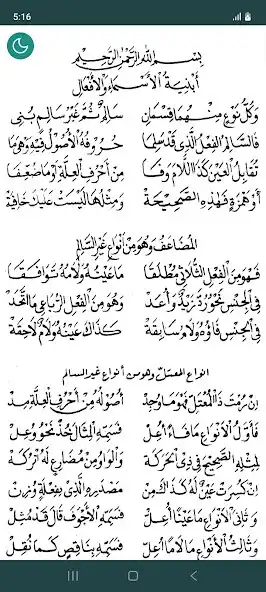 5:16
بسم الله الرحمن الرحيم
أبنية الأسماء والأفعال
وكل نوع منهما قسمان سالم ثم غير سالم بني
فالسالم الفعل الذي قد سلما حروفه الأصول فيه وهما
تقابل العين كذا اللام وفا من أحرف العلة أو ما ضعفا
أو همزة فهذه الصحيحة ومثلها ليست عليك خافية
المضاعف وهو من أنواع غير السالم
فهو من الفعل الثلاثي مطلقا ما عينه ولامه توافقا
في الجنس نحو رد زيد وأعد وهو من الفعل الرباعي ما اتحد
في الجنس فاؤه ولام سابقة كذاك عينه ولام لاحقة
انواع المعتل وهو من أنواع غير السالم
ان رمت ذا المعتل فهو ما وجد أصوله من أحرف العلة مد
فأول الأنواع ما فاء أعل فسمه المثال خذ نحو وعل
لمثله الصحيح في ذي الحركة والواو من مضارع له اتركه
إن كسرت عين له كذاك من مصدره والذي بفعلة وزن
وثاني الأنواع ما عينا أعل فسمه الأجوف قال قد مثل
وثالث الأنواع ما لاما اعل فسمه بناقص كما نقل